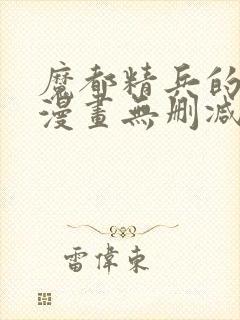 魔都精兵的
漫畫無刪减
雷偉東